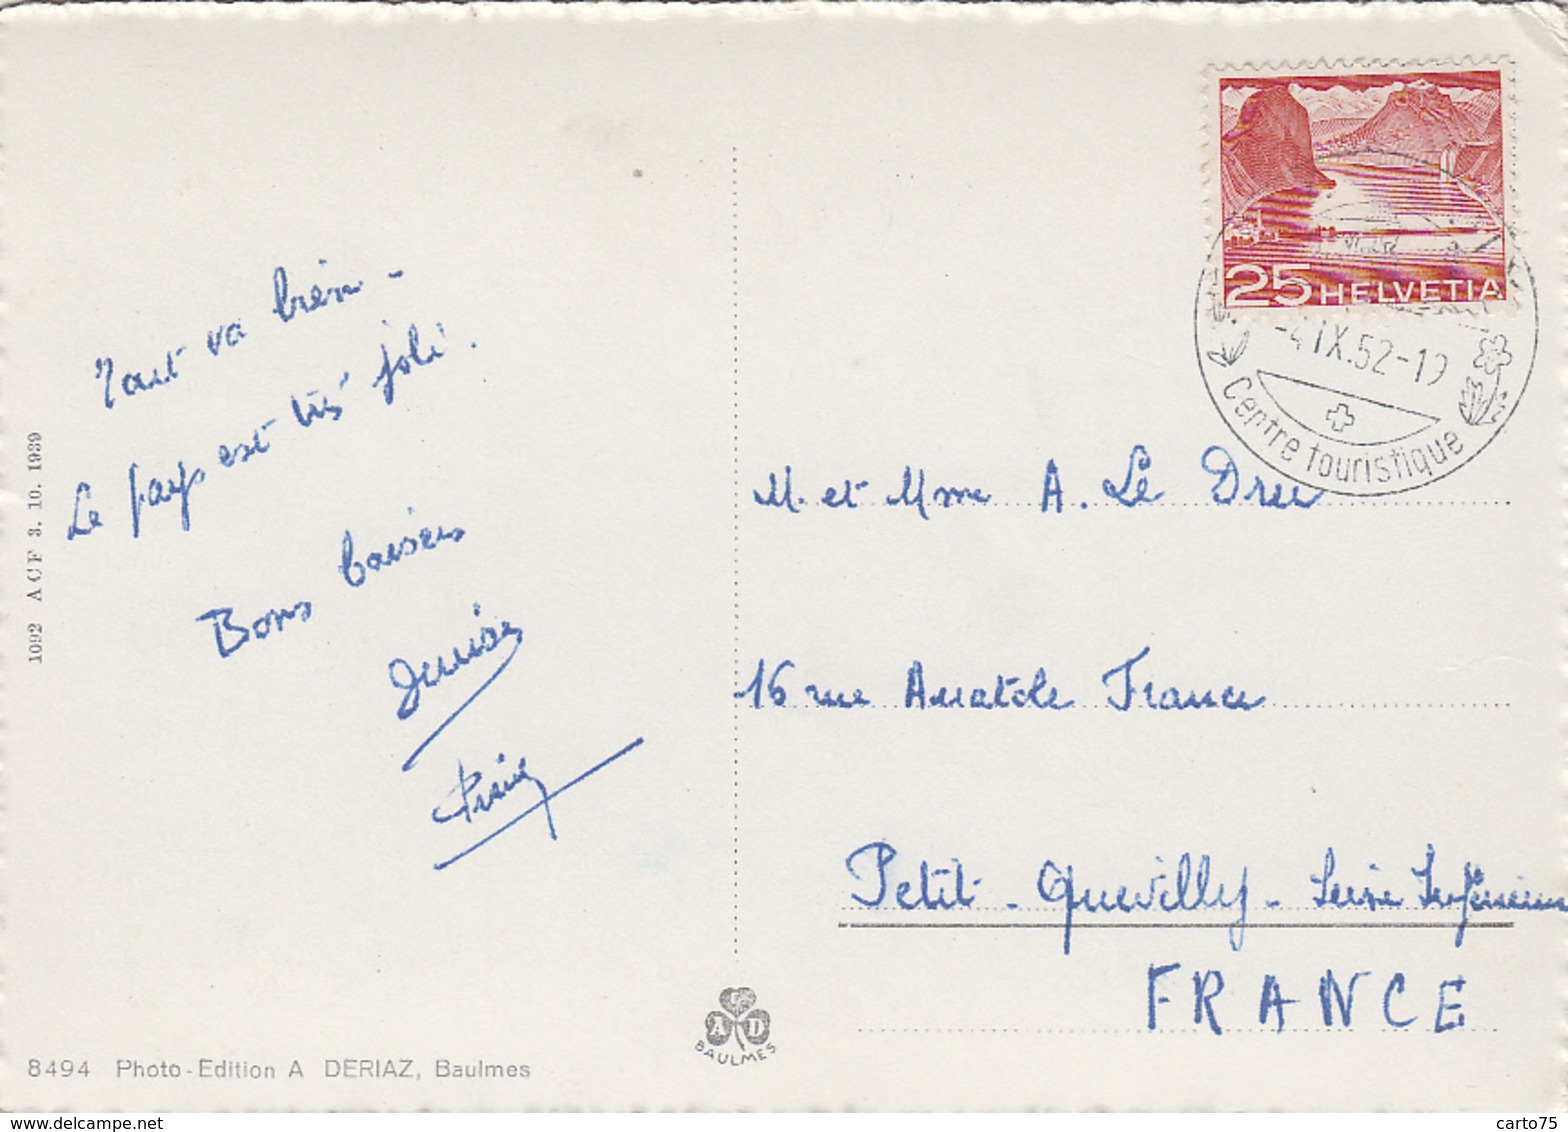 Tout va bien -
Le pays est très joli.
Bons baisers
Denise
1092 ACF 3. 10. 1939
25 HELVETIA
-4.IX.52-19
Centre touristique
M. et Mme A. Le Dreu
16 rue Anatole France
Petit-Quevilly - Seine Inférieure
FRANCE
A D
BAULMES
8494 Photo-Edition A DERIAZ, Baulmes
www.delcampe.net
carto75